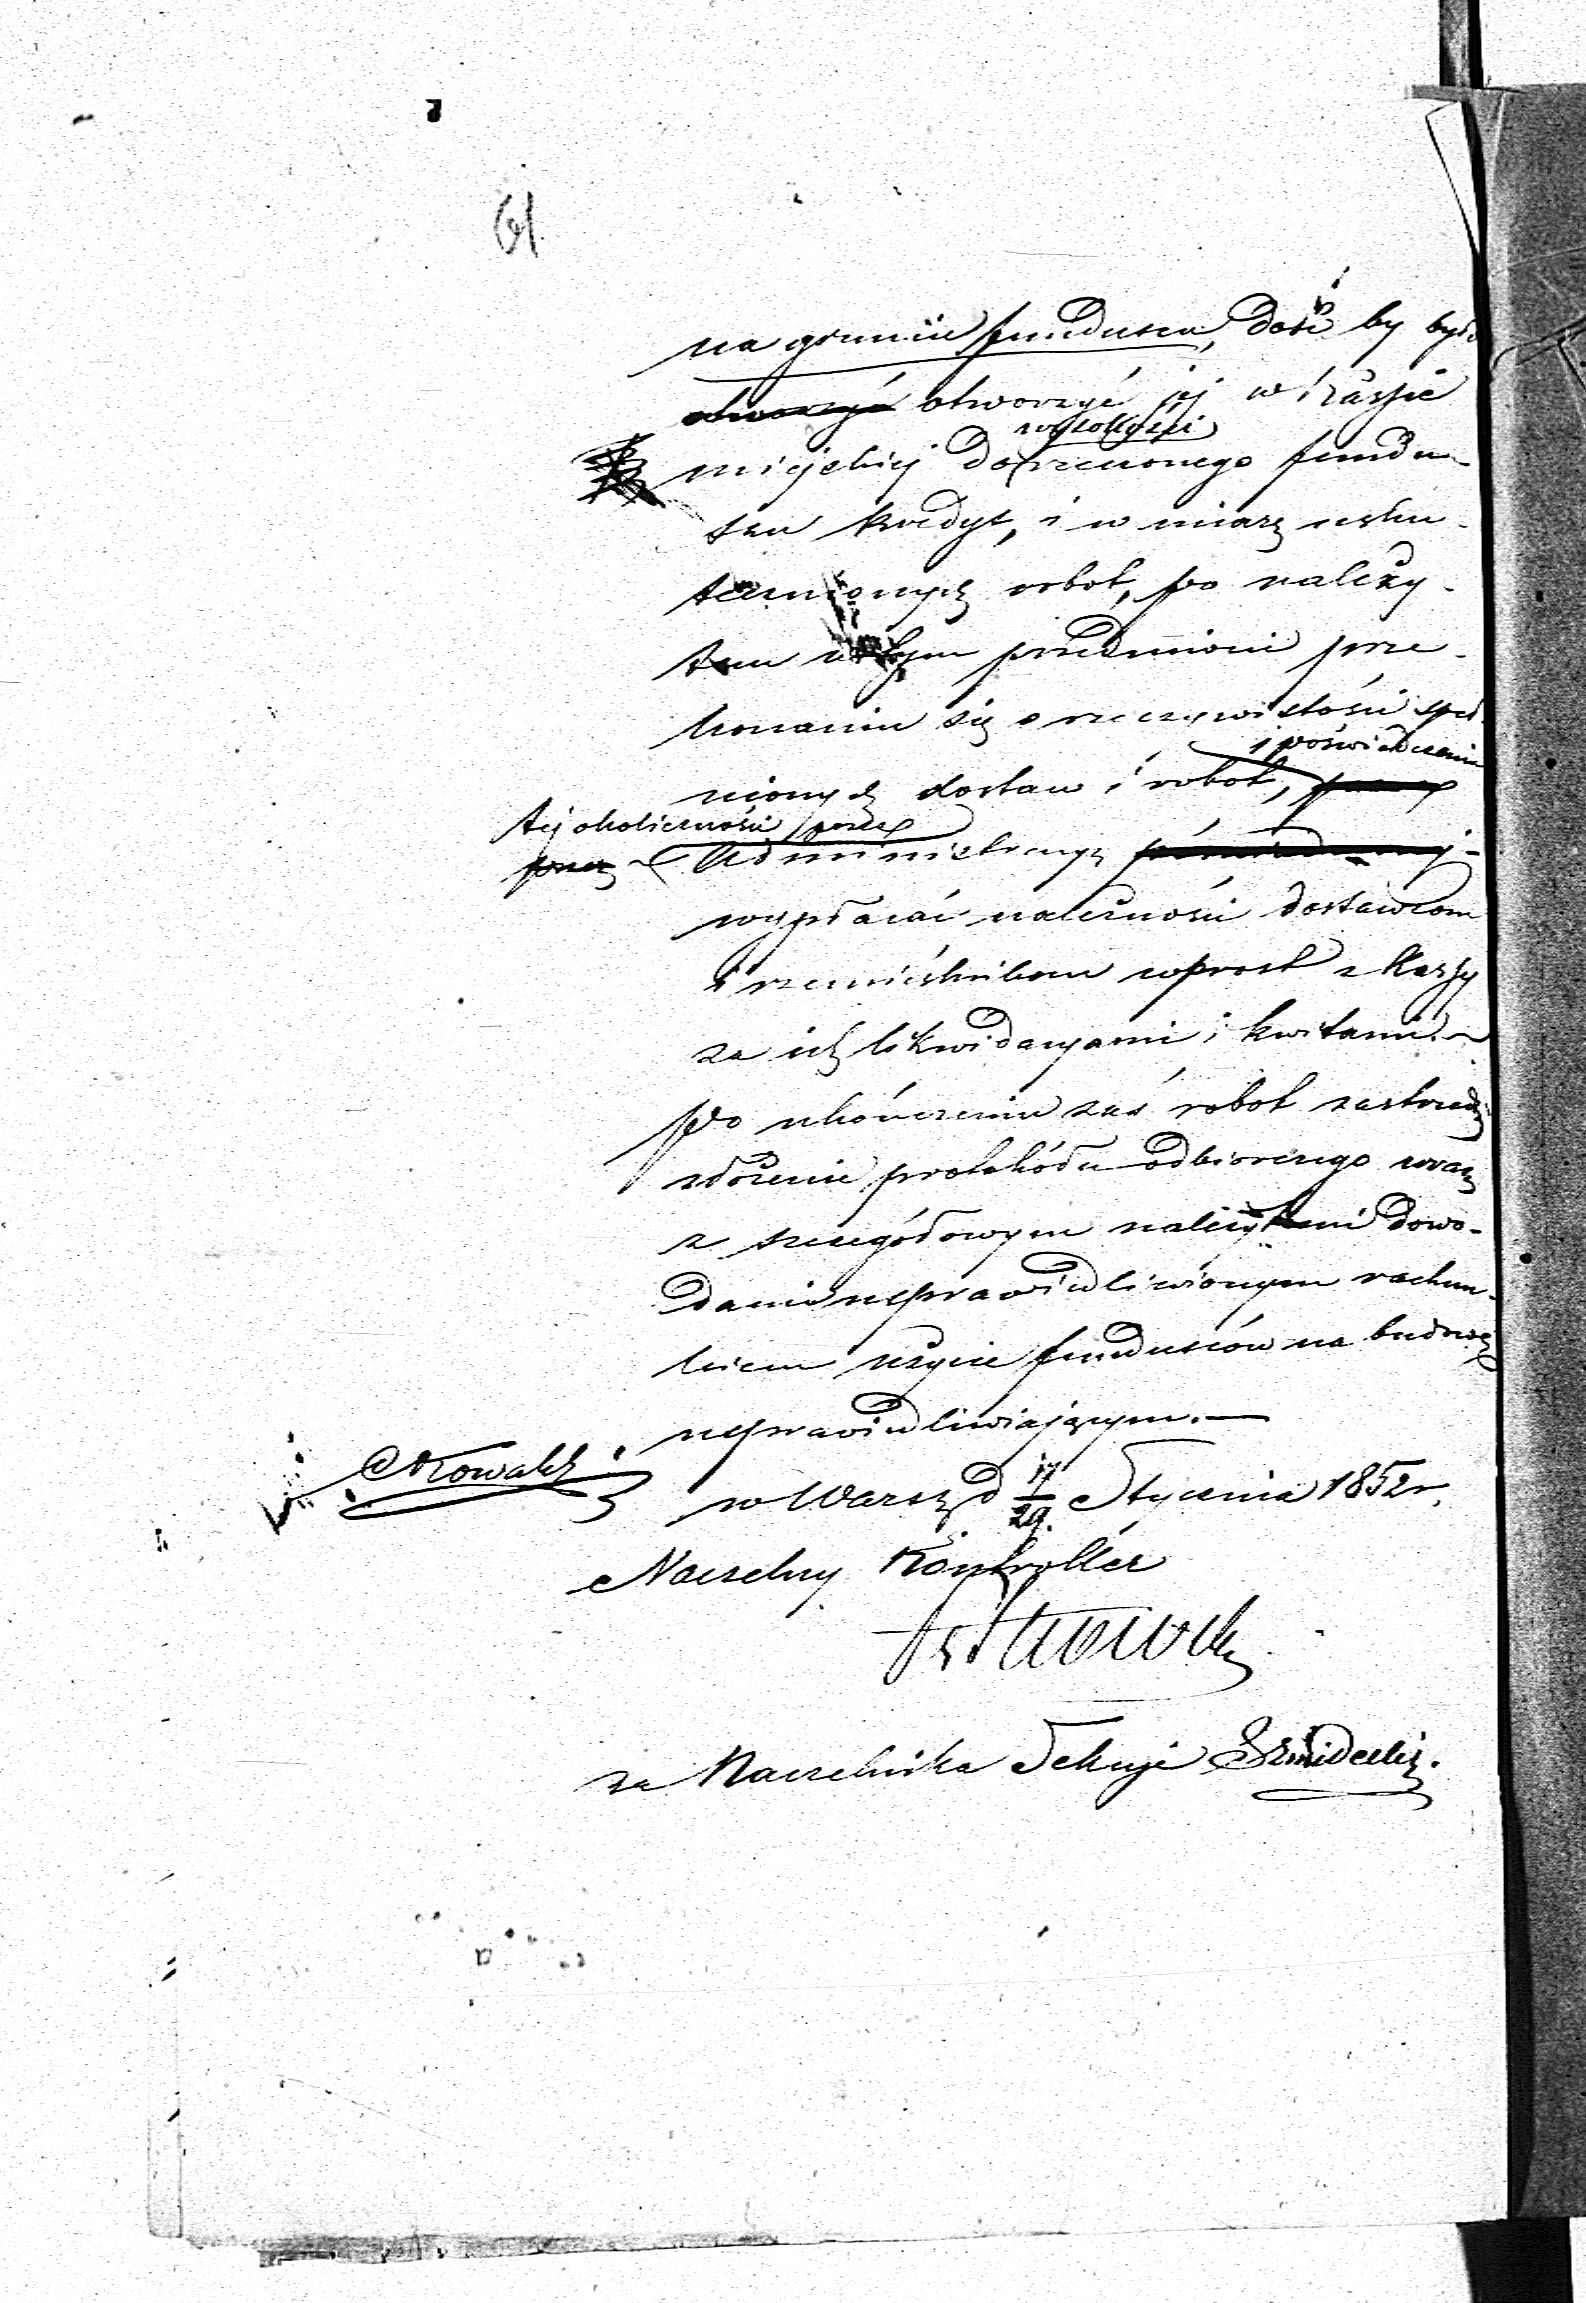 61
na gruncie funduszu, dość by było
otworzyć otworzyć jej w kassie
miejskiej do wysokości rzeczonego fundu-
szu kredyt, i w miarę usku-
tecznionych robot, po należy-
tem w tym przedmiocie prze-
konaniu się o rzeczywistości speł-
nionych dostaw i robot, i poświadczeniu
tej okoliczności przez
przez Administracyę
wypłacać należności dostawcom
i rzemieślnikom wprost z Kassy
za ich likwidacyami i kwitami.
Po ukończeniu zaś robot zastrzedz
złożenie protokółu odbiorczego wraz
z szczegółowym należytemi dowo-
dami usprawiedliwionym rachun-
kiem użycie funduszów na budowę
usprawiedliwiającym.
w Warsz. d 17/29 Stycznia 1852 r.
Naczelny Kontroller
za Naczelnika Sekcyi